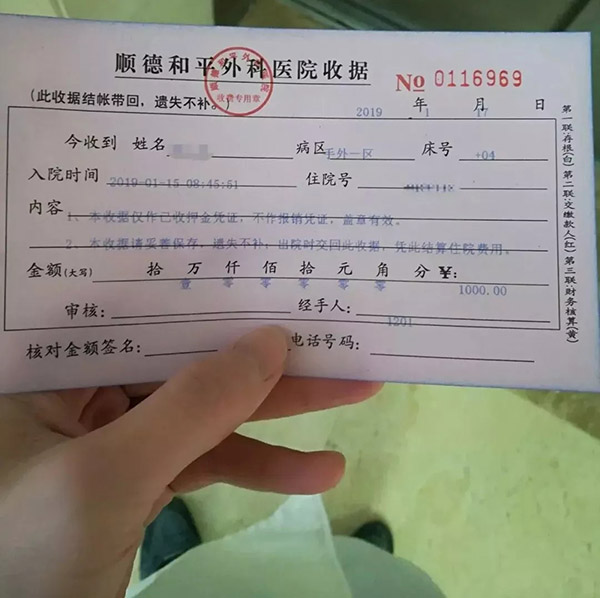 顺德和平外科医院收据
收费专用章
№ 0116969
(此收据结帐带回，遗失不补。)
2019 年 1 月 17 日
今收到 姓名 病区 手外一区 床号 +04
入院时间 2019-01-15 08:45:51 住院号
内容 1、本收据仅作已收押金凭证，不作报销凭证，盖章有效。
2、本收据请妥善保存，遗失不补；出院时交回此收据，凭此结算住院费用。
金额(大写) 拾 万 仟 佰 拾 元 角 分 ¥:
壹 零 零 零 零 零 1000.00
审核: 经手人: 1201
核对金额签名: 电话号码:
第一联:存根(白) 第二联:交缴款人(红) 第三联:财务核算(黄)